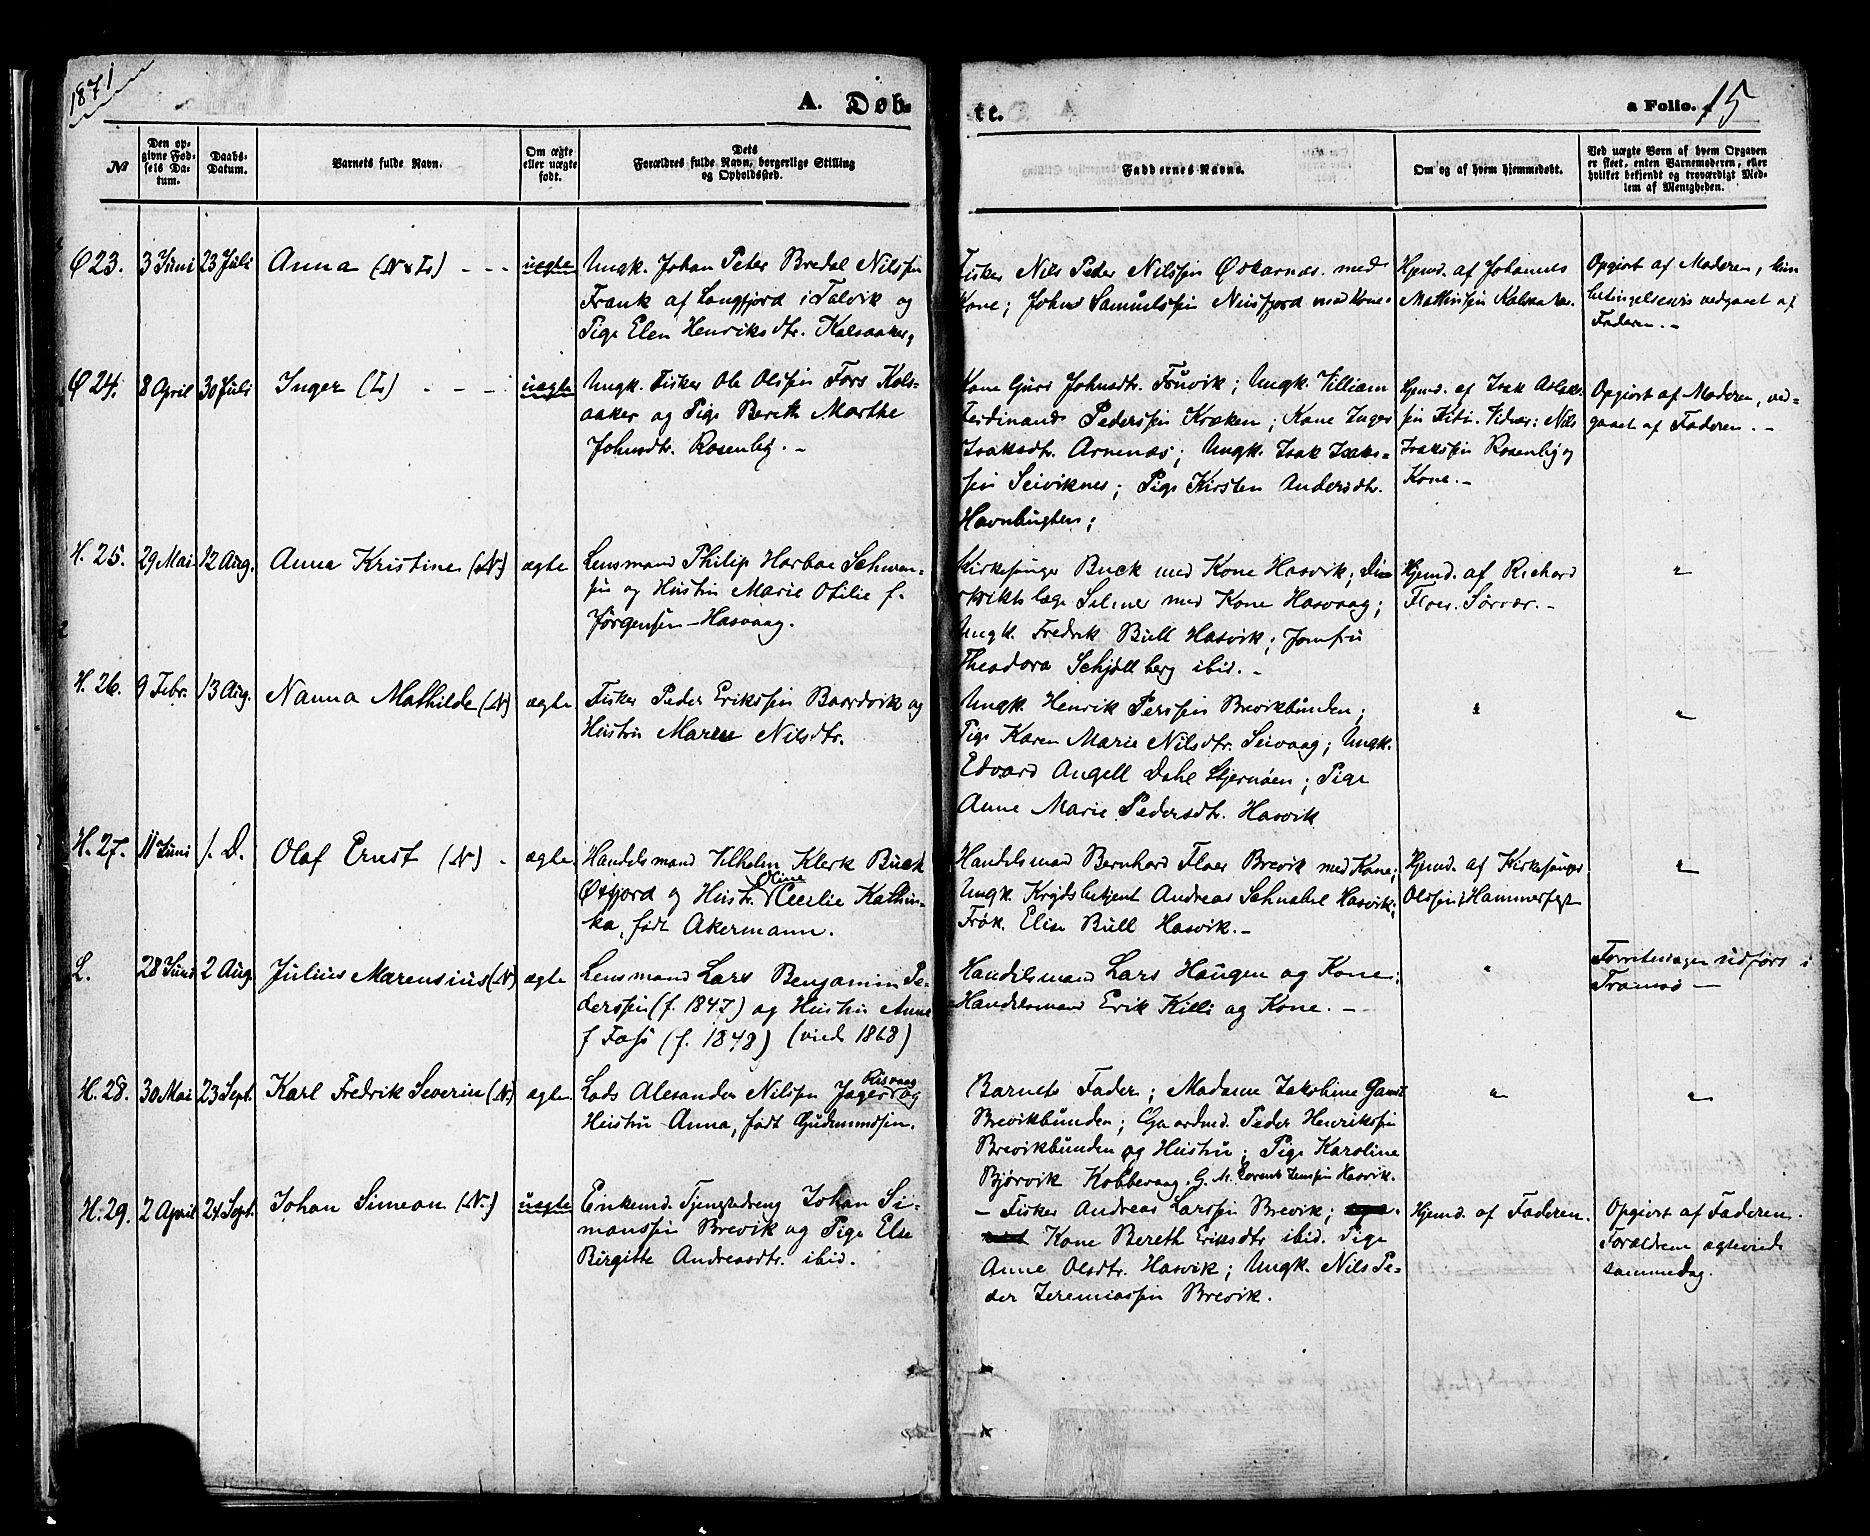 1871
A. Døb-
te.
a Folio. 15
№
Den op-
givne Fød-
sels Da-
tum.
Daabs-
Datum.
Barnets fulde Navn.
Om ægte
eller uægte
født.
Dets
Forældres fulde Navn, borgerlige Stilling
og Opholdssted.
Faddernes Navne.
Om og af hvem hjemmedøbt.
Ved uægte Børn af hvem Opgaven
er skeet, enten Barnemoderen, eller
hvilket bekjendt og troværdigt Med-
lem af Menigheden.
Ø 23. 3 Juni 23 Juli Anna (N & L) - - - uegte
Ungk. Johan Peter Bredal Nilssen
Frank af Langfjord i Talvik og
Pige Elen Henriksdtr. Kalsaaker,
Fisker Nils Peder Nilssen Øskarnæs. med
Kone; Johns Samuelssen Nuisfjord med Kone.
Hjmd. af Johannes
Mathissen Kalsaaker.
Opgivet af Moderen,
betingelsesvis vedgaaet af
Faderen. -
Ø 24. 8 April 30 Juli Inger (L) - - - uegte
Ungk. Fisker Ole Olssen Fors Kals-
aaker og Pige Bereth Marthe
Johnsdtr. Rosenlig. -
Kone Guro Johnsdtr. Ungk. Villiam
Ferdinand Pederssen Kraken; Kone Inger
Isaksdtr. Arnenæs; Ungk. Isak Isaks-
sen Seiviknes; Pige Kirsten Andersdtr.
Havnbugten;
Hjmd. af Isak Aslak-
sen Nils
Isakssen Rosenlig og
Kone. -
Opgivet af Moderen, ved-
gaaet af Faderen. -
H. 25. 29 Mai 12 Aug. Anna Kristine (N) ægte
Lensmand Philip Harboe Schwen-
sen og Hustru Marie Otilie f.
Jørgensen - Hasvaag.
Kirkesanger Buck med Kone Hasvik; Di-
striktslæge Selmer med Kone Hasvaag;
Ungk. Fredrik Bull Hasvik; Jomfru
Theodora Schjøllberg ibid. -
Hjmd. af Richard
Floer. Sørvær. -
"
H. 26. 9 Febr. 13 Aug. Nanna Mathilde (N) ægte
Fisker Peder Erikssen Baardvik og
Hustru Maren Nilsdtr.
Ungk. Henrik Perssen Brevikbunden;
Pige Karen Marie Nilsdtr. Seivaag; Ungk.
Edvard Angell Dahl Stjernøen; Pige
Anne Marie Pedersdtr. Hasvik
"
"
H. 27. 11 Juni s. D. Olaf Ernst (N) - ægte
Handelsmand Vilhelm Klerk Buck
Øxfjord og Hustr. Oline Cecilie Kathin-
ka, født Akermann.
Handelsmand Bernhard Floer Brevik med Kone;
Ungk. Krydsbetjent Andreas Schnabel Hasvik;
Frøk. Elise Bull Hasvik. -
Hjmd. af Kirkesanger
Olssen i Hammerfest
"
L. 28 Juni 2 Aug. Julius Marensius (N) ægte
Lensmand Lars Benjamin Pe-
derssen (f. 1847) og Hustru Anne
f (f. 1848) (vied 1868)
Handelsmand Lars Haugen og Kone;
Handelsmand Erik Killi og Kone. -
"
Forretningen udført i
Tromsø -
H. 28. 30 Mai 23 Sept. Karl Fredrik Severin (N) ægte
Lods Alexander Nilssen Jager Risvaag og
Hustru Anna, født Gudmundsen.
Barnets Fader; Madame Jakobine Gamst
Brevikbunden; Gaardmd. Peder Henrikssen
Brevikbunden og Hustru; Pige Karoline
Bjørvik Kobbevaag. G. M. Lorents Jenssen Hasvik.
"
"
H. 29. 2 April 24 Sept. Johan Simean (N.) uegte
Enkemd. Tjenestedreng Johan Si-
monssen Brevik og Pige Else
Birgitte Andreasdtr. ibid.
- Fisker Andreas Larssen Brevik;
Kone Bereth Eriksdtr ibid. Pige
Anne Olsdtr. Hasvik; Ungk. Nils Pe-
der Jeremiassen Brevik.
Hjmd. af Faderen.
Opgivet af Faderen.
Forældrene ægteviede
sammedag.